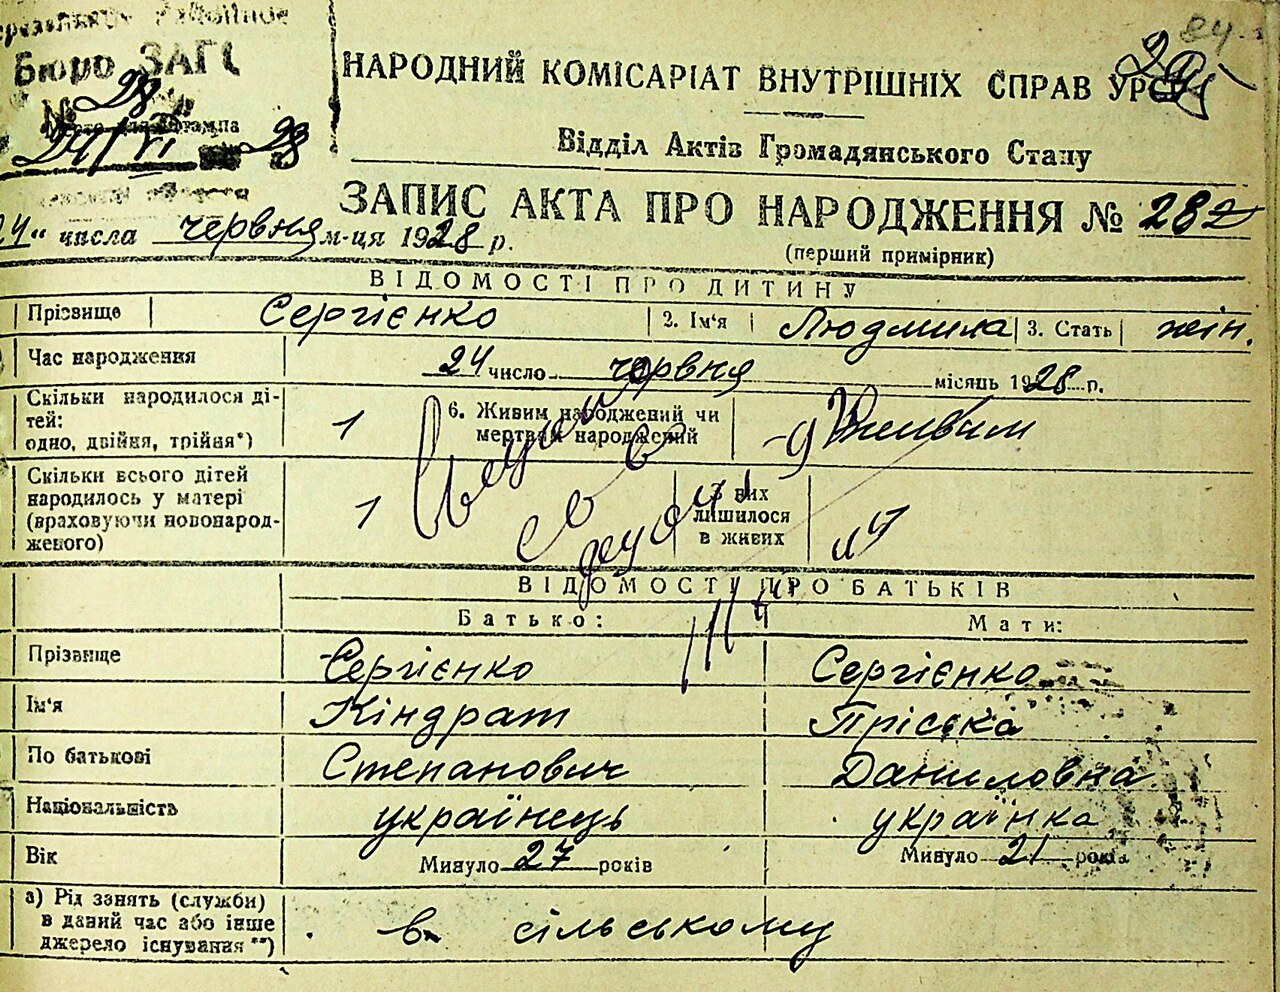 Бюро ЗАГС
84
№ 28
НАРОДНИЙ КОМІСАРІАТ ВНУТРІШНІХ СПРАВ УРСР
24/VI 28
Відділ Актів Громадянського Стану
ЗАПИС АКТА ПРО НАРОДЖЕННЯ № 282
24" числа червня м-ця 1928 р.
(перший примірник)
ВІДОМОСТІ ПРО ДИТИНУ
Прізвище Сергієнко 2. Ім'я Людмила 3. Стать жін.
Час народження 24 число червня місяць 1928 р.
Скільки народилося ді-
тей:
одно, двійня, трійня*) 1
6. Живим народжений чи
мертвим народжений Живим
Скільки всього дітей
народилось у матері
(враховуючи новонарод-
женого) 1
З них
лишилося
в живих
ВІДОМОСТІ ПРО БАТЬКІВ
Батько: Мати:
Прізвище Сергієнко Сергієнко
Ім'я Кіндрат Пріська
По батькові Степанович Даниловна
Національність українець українка
Вік Минуло 27 років Минуло 21 років
а) Рід занять (служби)
в даний час або інше
джерело існування **) в сільському